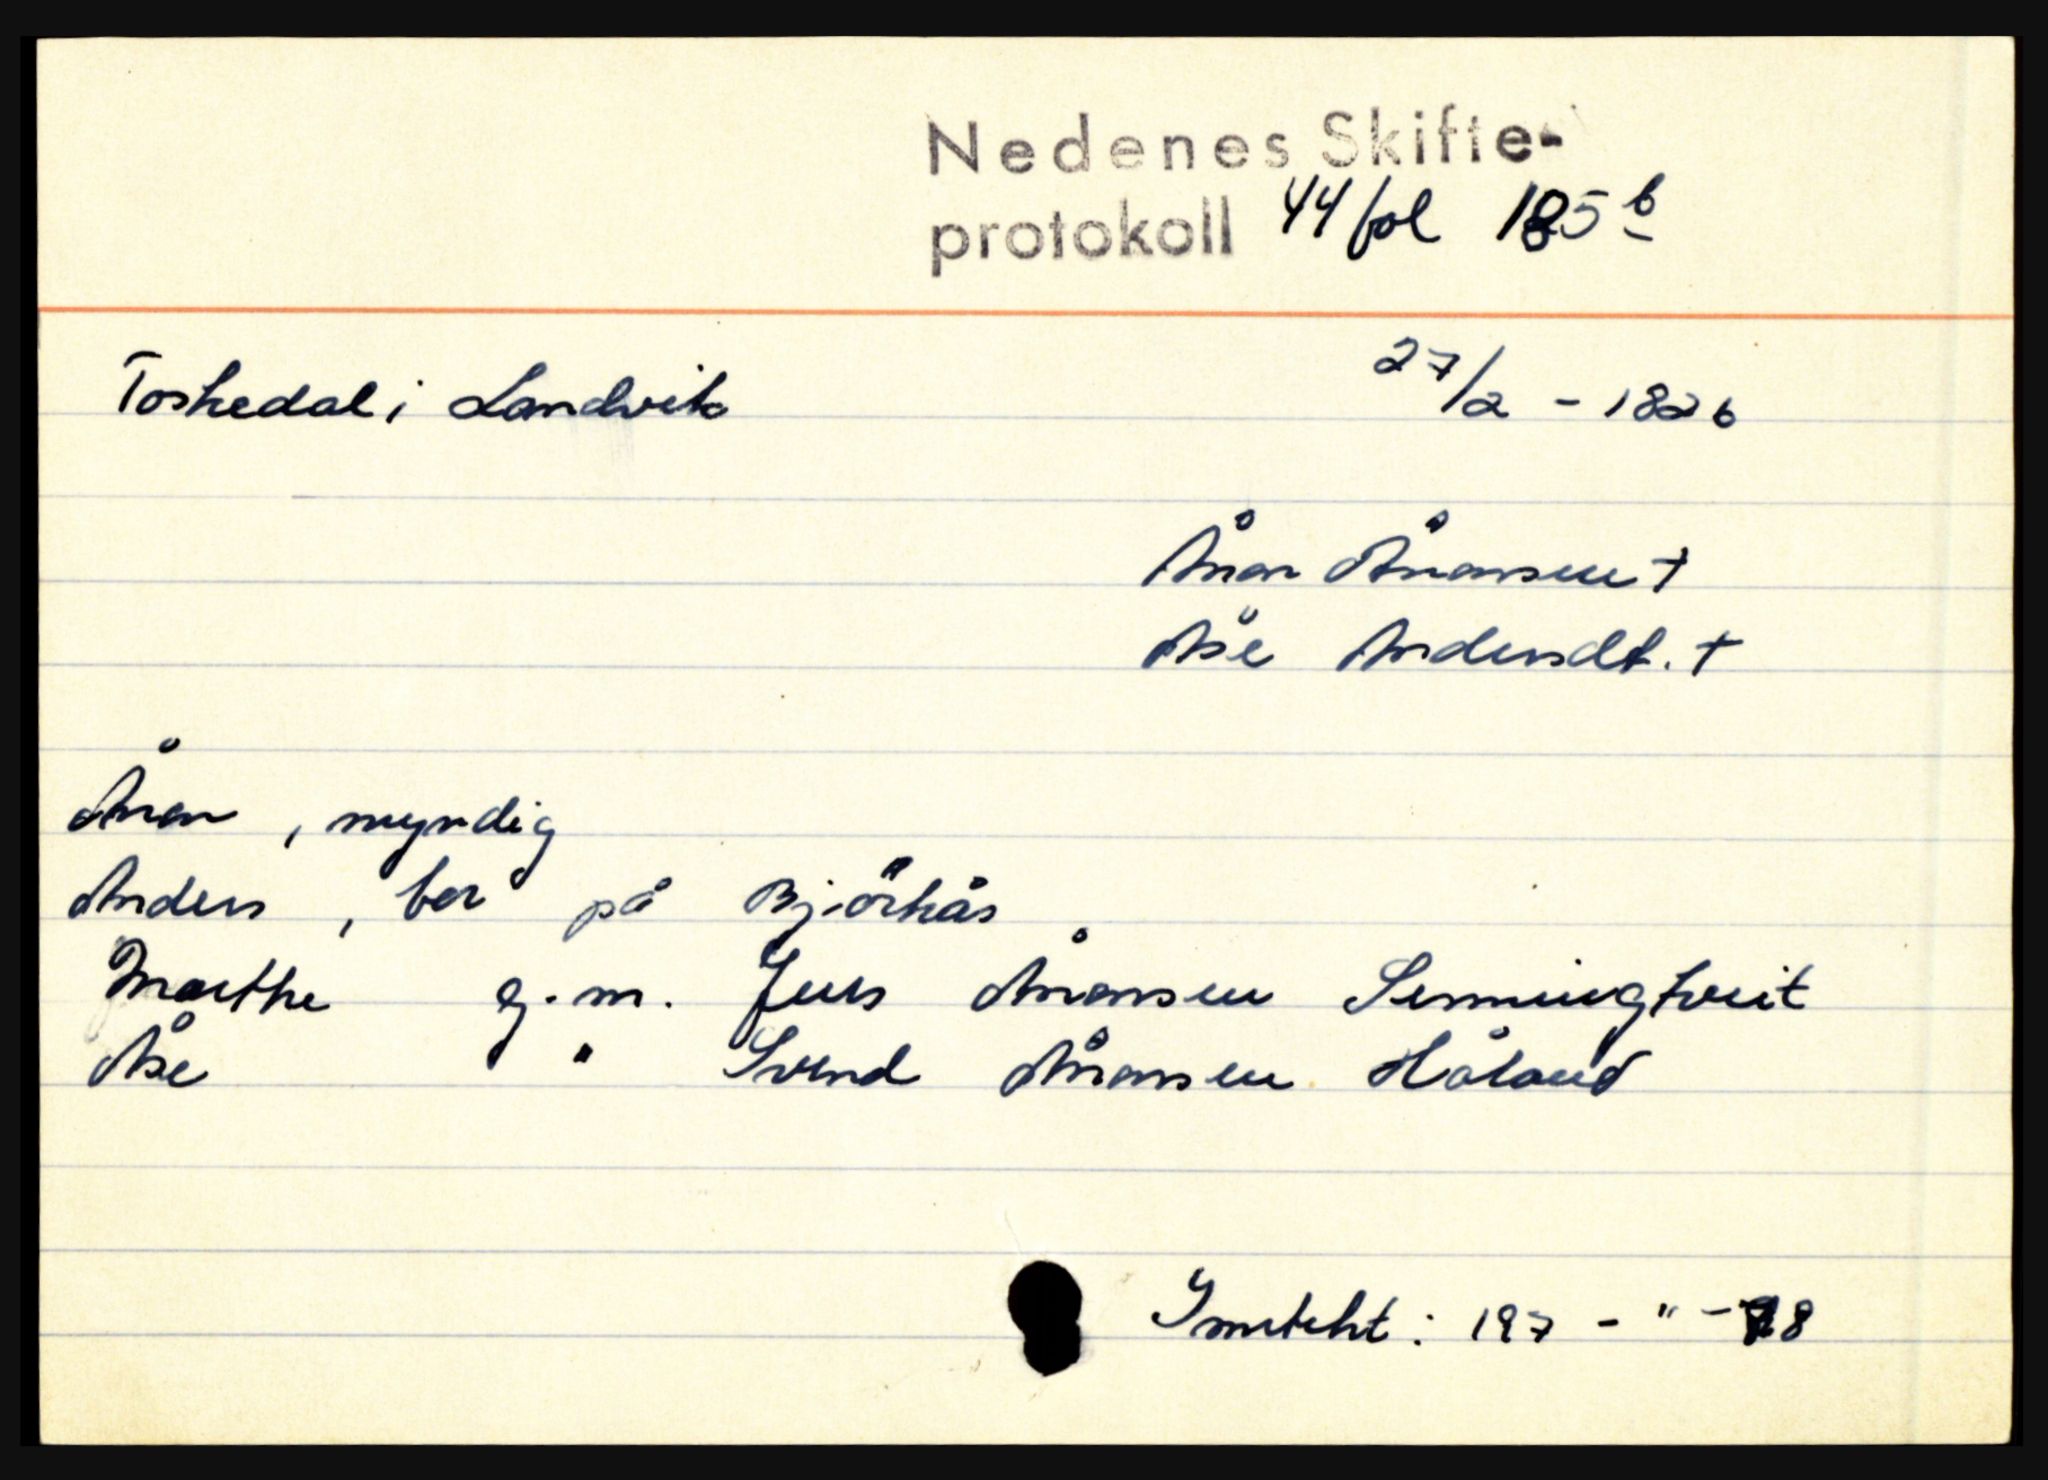 Nedenes Skifte-
protokoll 44 fol 185 b
Toskedal i Landvik 27/2 - 1826
Ånon Ånonsen +
Åse Andersdt. +
Ånon , myndig
Anders , bor på Björkås
Marthe g.m. Jens Ånonsen Senningtveit
Åse " Svend Ånonsen Håland
Inntekt : 197 - " - 8